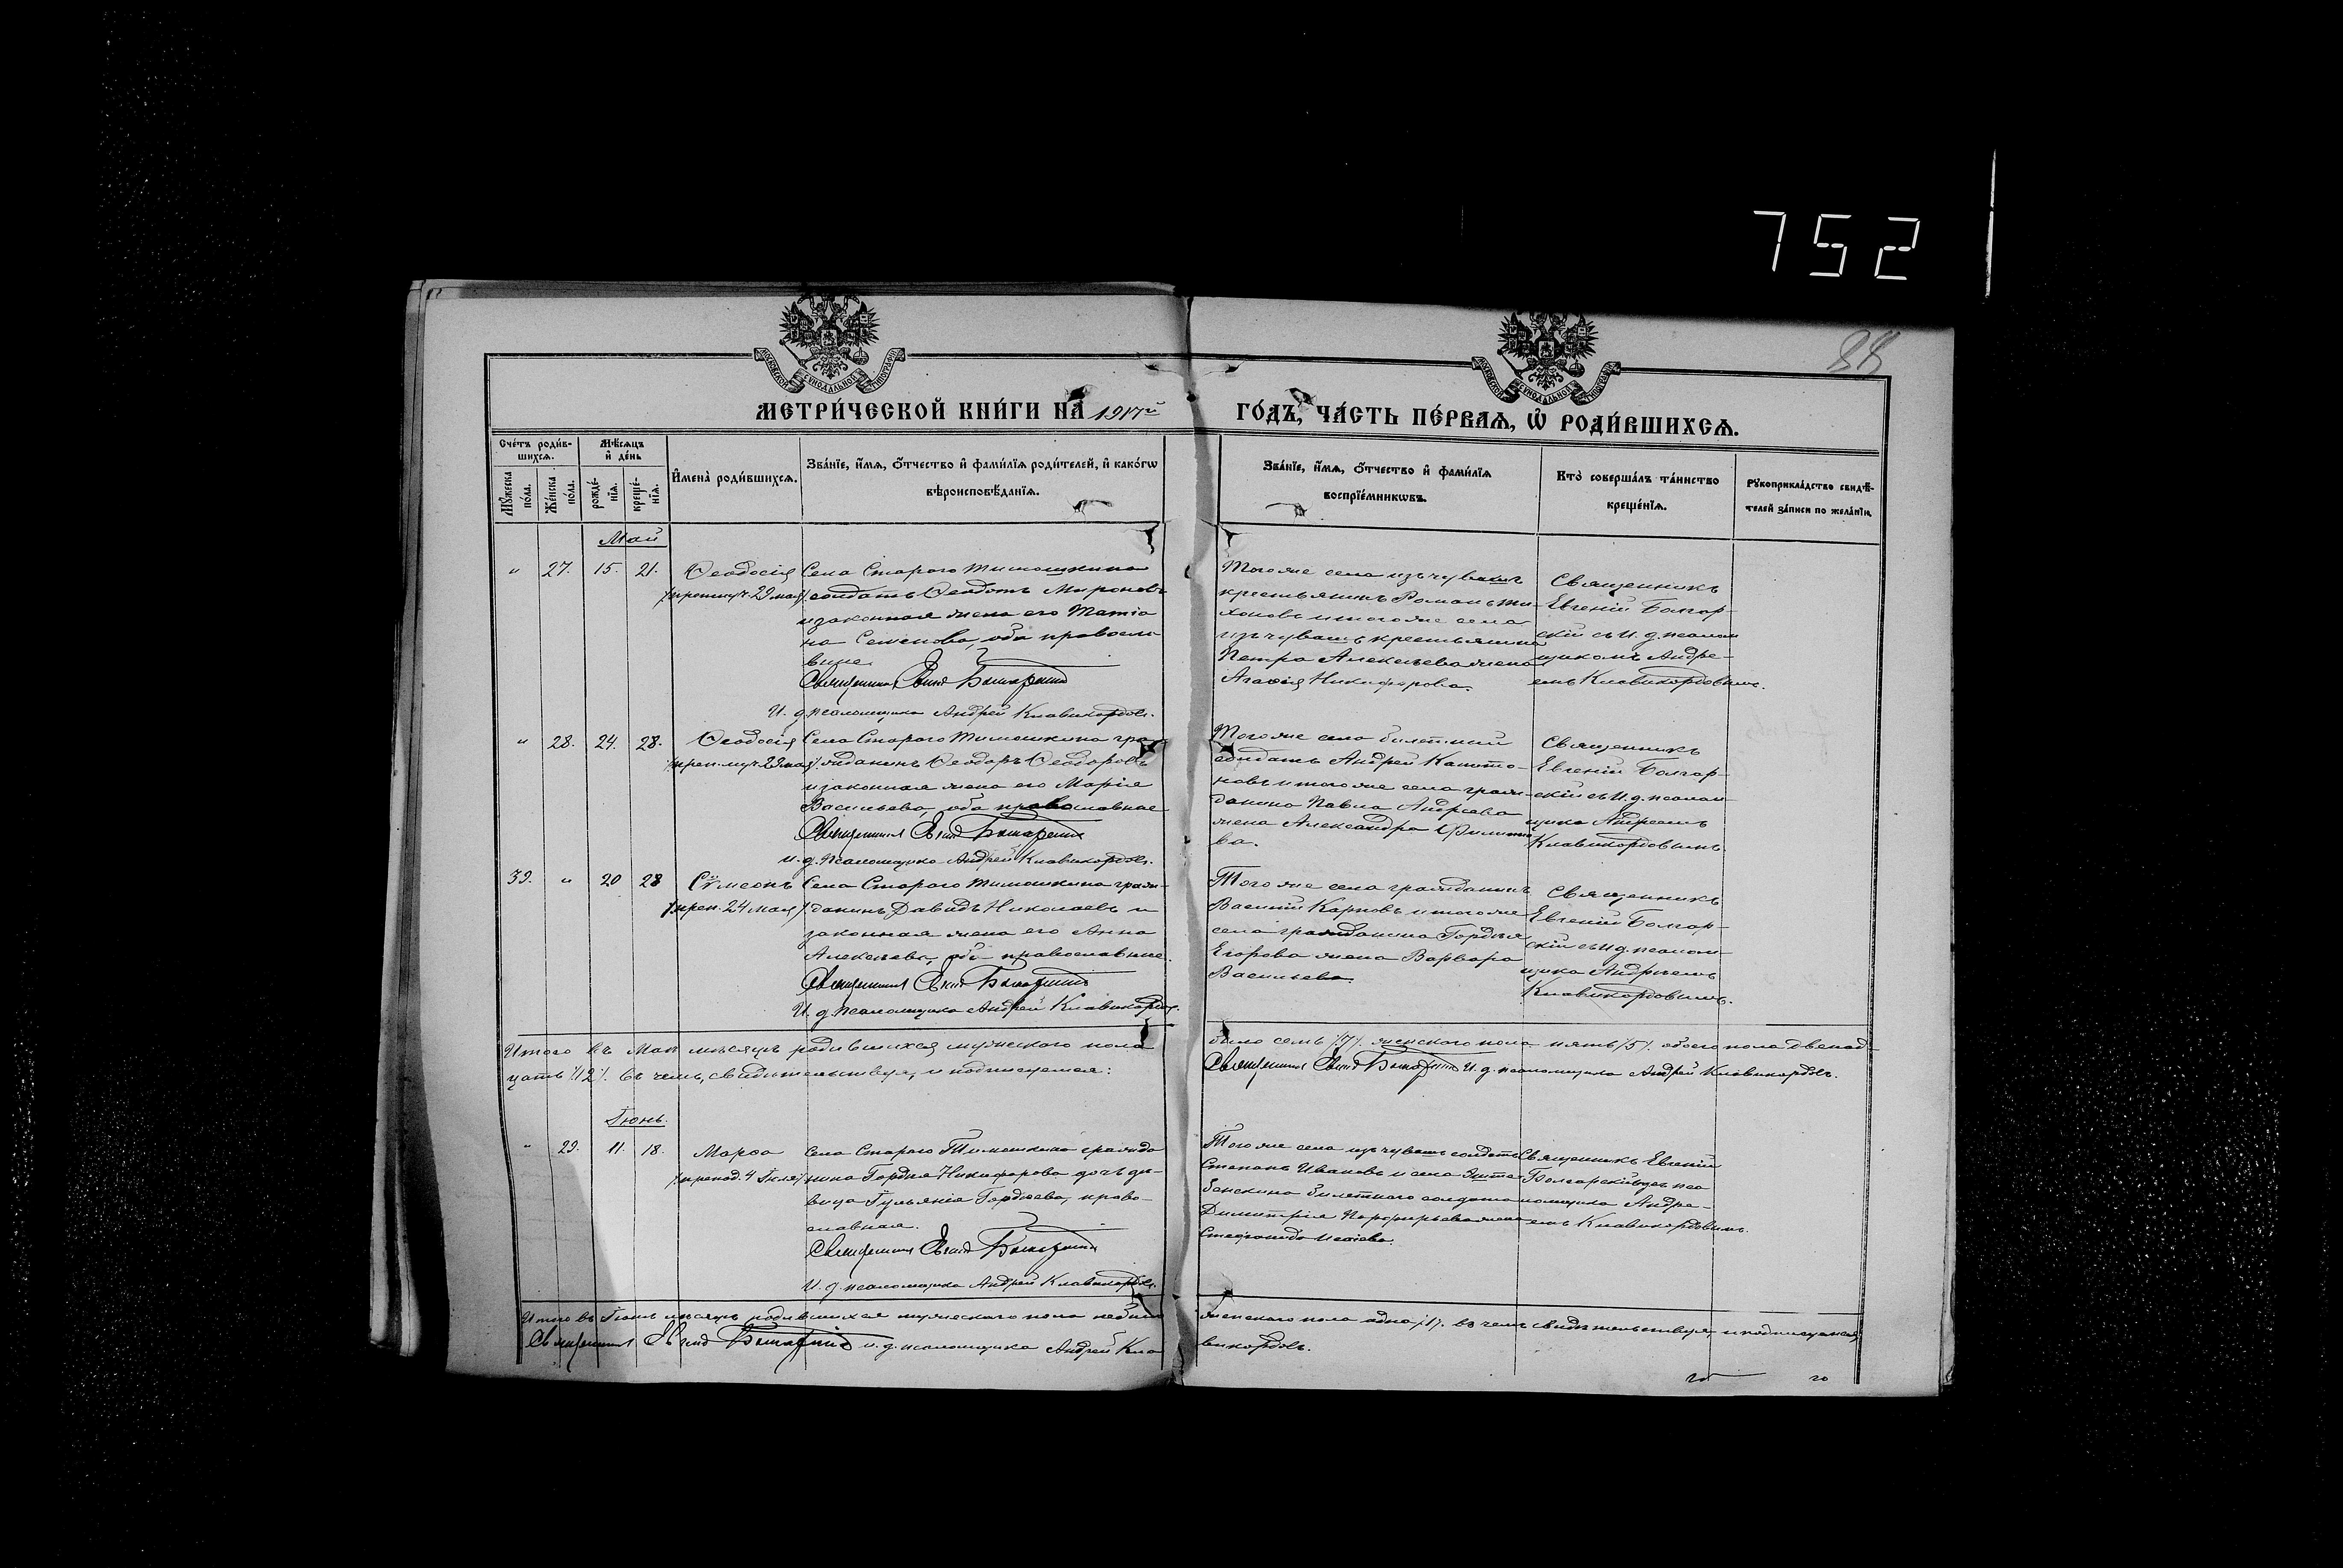 752
88
МОСКОВСКОЙ СУНОДАЛЬНОЙ ТИПОГРАФІИ
МОСКОВСКОЙ СУНОДАЛЬНОЙ ТИПОГРАФІИ
МЕТРИ́ЧЕСКОЙ КНИ́ГИ НА 1917й ГО́ДЪ, ЧА́СТЬ ПЕ́РВАѦ, Ѡ҆ РОДИ́ВШИХСѦ.
Сче́тъ роди́в-
шихсѧ.
Мѣ́сѧцъ
и҆ де́нь
Мꙋ́жеска
по́ла.
Же́нска
по́ла.
рожде́-
нїѧ.
креще́-
нїѧ.
И҆мена̀ роди́вшихсѧ.
Зва́нїе, и҆́мѧ, ѻ҆́тчество и҆ фами́лїѧ роди́телей, и҆ како́гѡ
вѣроисповѣ́данїѧ.
Зва́нїе, и҆́мѧ, ѻ҆́тчество и҆ фами́лїѧ
воспрїе́мникѡвъ.
Кто̀ соверша́лъ та́инство
креще́нїѧ.
Рꙋкоприкла́дство свидѣ́-
телей за́писи по жела́нїю.
Май
" 27. 15. 21. Ѳеодосія
/препмуч. 29 мая/
Села Стараго Тимошкина
солдатъ Ѳедотъ Мироновъ
и законная жена его Татіа
на Семенова, оба правосла
вные.
Священникъ Евгеній Болгарскій
И. д. псаломщика Андрей Клавикордовъ.
Того же села изъ чувашъ
крестьянинъ Романъ Ти-
хоновъ и того же села
изъ чувашъ крестьянина
Петра Алексѣева жена
Агаѳія Никифорова.
Священникъ
Евгеній Болгар-
скій съ И. д. псалом
щикомъ Андре-
емъ Клавикордовымъ.
" 28. 24. 28. Ѳеодосія
/преп. муч. 29 мая/
Села Стараго Тимошкина гра
жданинъ Ѳеодоръ Ѳеодоровъ
и законная жена его Марія
Васильева, оба православные
Священникъ Евгеній Болгарскій
и. д. Псаломщика Андрей Клавикордовъ.
Того же села билетный
солдатъ Андрей Капито-
новъ и того же села граж-
данина Павла Андреева
жена Александра Филиппо
ва.
Священникъ
Евгеній Болгар-
скій съ И. д. псалом-
щика Андреемъ
Клавикордовымъ.
39. " 20 28 Сѷмеонъ
/преп. 24 мая/
Села Стараго Тимошкина граж-
данинъ Давидъ Николаевъ и
законная жена его Анна
Алексѣева, оба православные.
Священникъ Евгеній Болгарскій
И. д. псаломщика Андрей Клавикордовъ.
Того же села гражданинъ
Василій Карповъ и того же
села гражданина Гордѣя
Егорова жена Варвара
Васильева.
Священникъ
Евгеній Болгар-
скій съ И д. псалом-
щика Андреемъ
Клавикордовымъ.
Итого въ Маѣ мѣсяцѣ родившихся мужескаго пола было семь /7/. женскаго пола пять /5/. обоего пола двенад-
цать /12/. въ чемъ, свидѣтельствуя, и подписуемся: Священникъ Евгеній Болгарскій И. д. псаломщика Андрей Клавикордовъ.
Іюнь.
" 29. 11. 18. Марѳа
/препод. 4 Іюля/
Села Стараго Тимошкина гражда
нина Гордѣя Никифорова дочь дѣ-
вица Гульянія Гордѣева, право-
славная.
Священникъ Евгеній Болгарскій
И. д. псаломщика Андрей Клавикордовъ.
Того же села изъ чувашъ солдатъ
Степанъ Ивановъ и села
билетнаго солдата
Димитрія Порфирьева жена
Степанида
Священникъ Евгеній
Болгарскій съ пса
ломщика Андре-
емъ Клавикордовымъ.
Итого въ Іюнѣ мѣсяцѣ родившихся мужескаго пола не было женскаго пола одна /1/. въ чемъ свидѣтельствуя, и подписуемся:
Священникъ Евгеній Болгарскій и. д. псаломщика Андрей Кла
викордовъ.